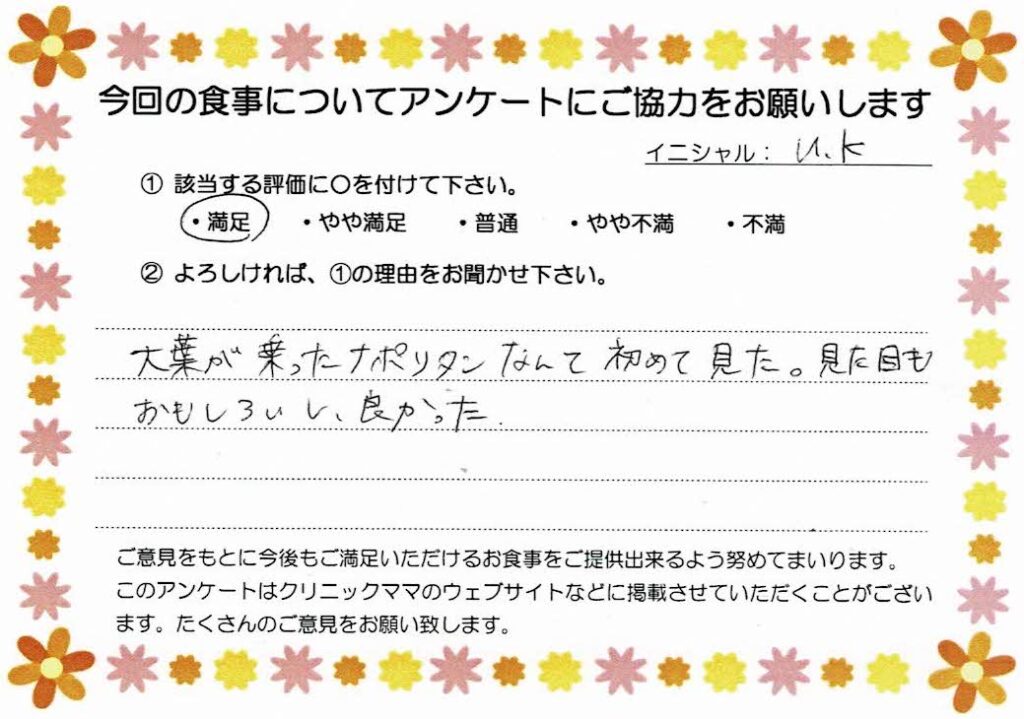 今回の食事についてアンケートにご協力をお願いします
イニシャル： U.K
① 該当する評価に〇を付けて下さい。
・満足 ・やや満足 ・普通 ・やや不満 ・不満
② よろしければ、①の理由をお聞かせ下さい。
大葉が乗ったナポリタンなんて初めて見た。見た目も
おもしろいし、良かった.
ご意見をもとに今後もご満足いただけるお食事をご提供出来るよう努めてまいります。
このアンケートはクリニックママのウェブサイトなどに掲載させていただくことがござい
ます。たくさんのご意見をお願い致します。